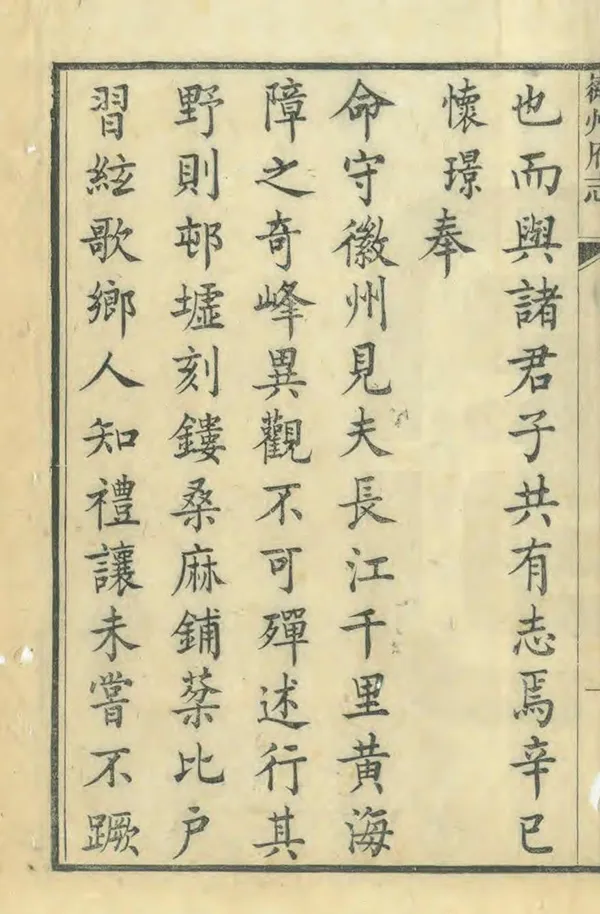 徽州府志
一
也而與諸君子共有志焉辛巳
懷璟奉
命守徽州見夫長江千里黃海
障之奇峰異觀不可殫述行其
野則邨墟刻鏤桑麻鋪棻比戶
習絃歌鄉人知禮讓未嘗不蹶